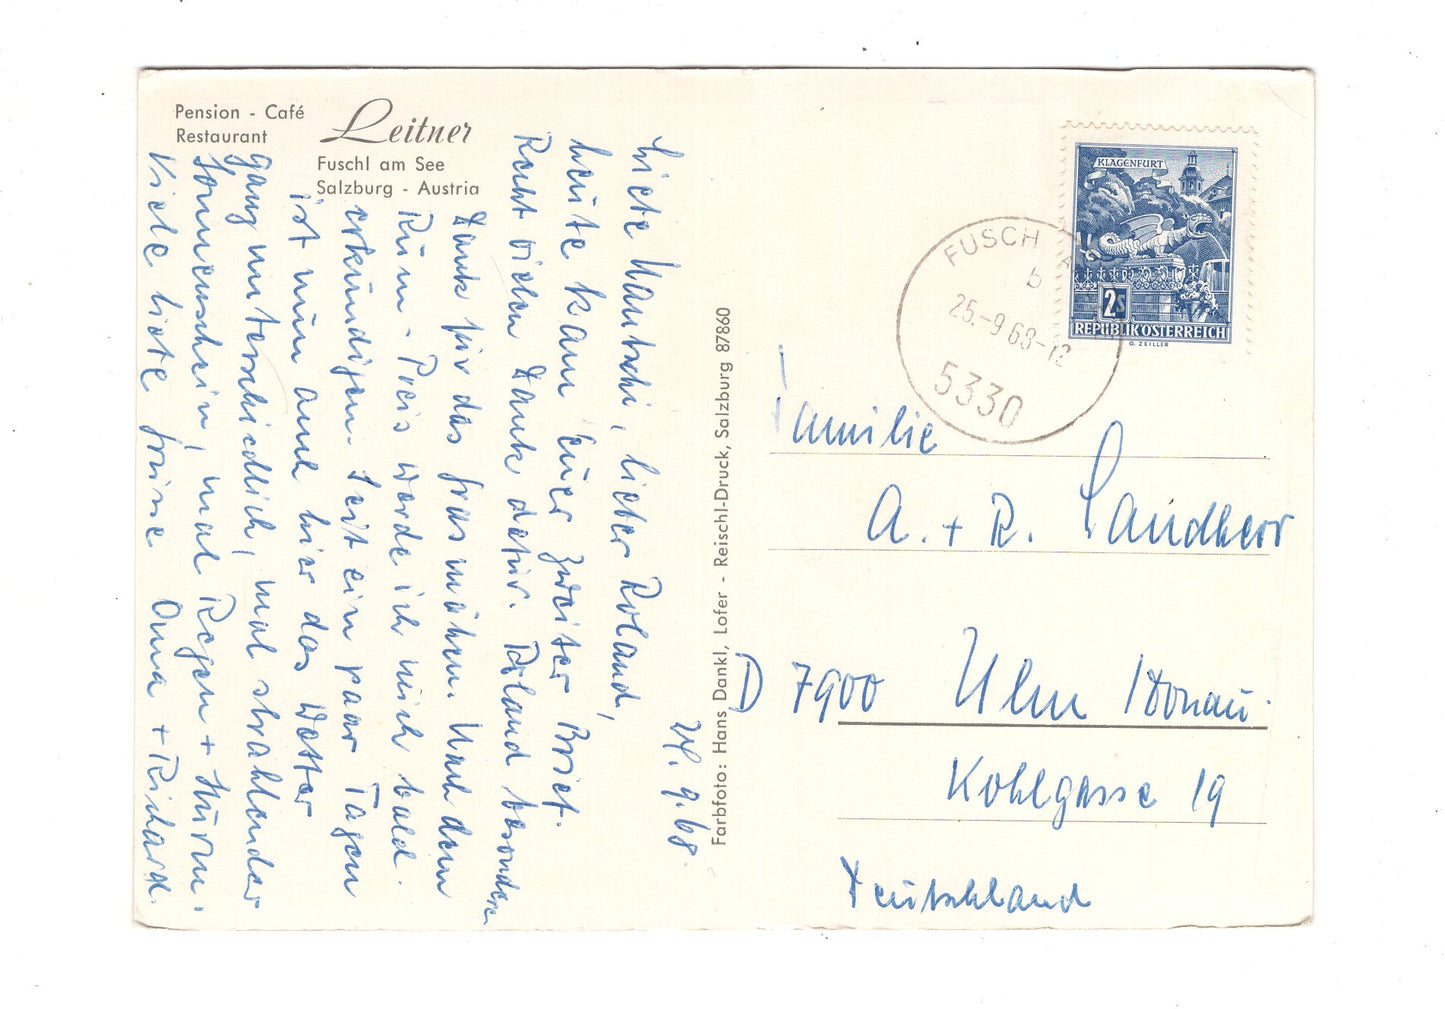 Pension - Café
Restaurant
Leitner
Fuschl am See
Salzburg - Austria
24.9.68.
Liebe Nautschi, lieber Roland,
heute kam Euer zweiter Brief.
Recht vielen Dank dafür. Roland besonders
Dank für das Gras mähen. Nach dem
Rum-Preis werde ich mich bald
erkundigen. Seit ein paar Tagen
ist nun auch hier das Wetter
ganz unterschiedlich, mal strahlender
Sonnenschein, mal Regen + Sturm.
Viele liebe Grüsse Oma + Richard.
Farbfoto: Hans Dankl, Lofer - Reischl-Druck, Salzburg 87860
KLAGENFURT
2S
REPUBLIK ÖSTERREICH
O. ZEILLER
FUSCHL A
b
25.-9.68-12
5330
Familie
A. + R. Landherr
D 7900 Ulm / Donau
Kohlgasse 19
Deutschland